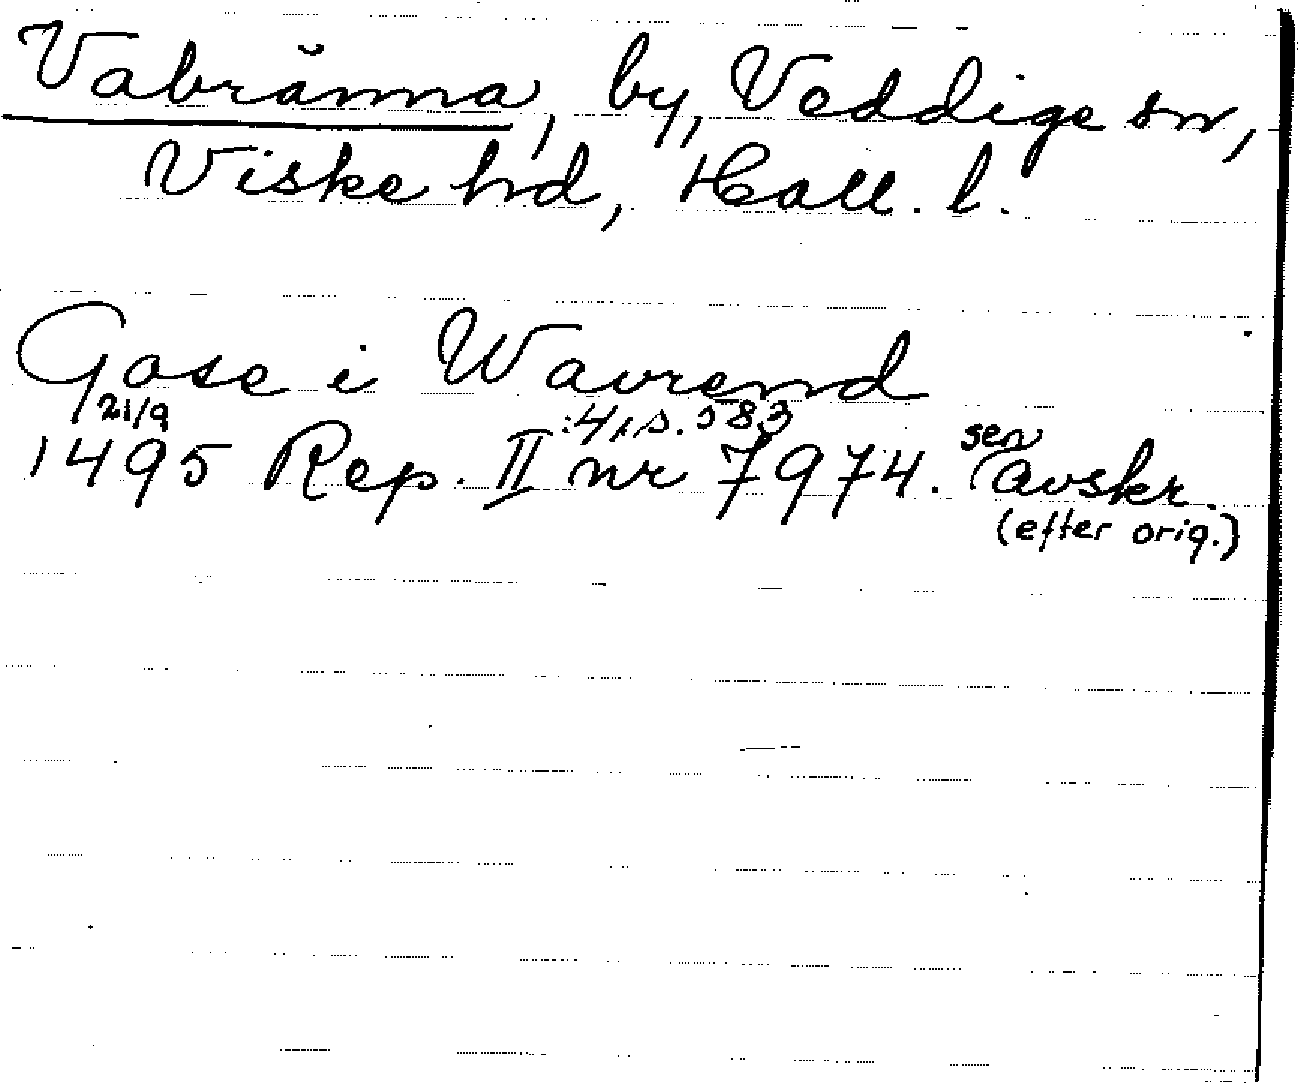 Vabränna, by, Veddige sn,
Viske hd, Hall. l.
Gose i Wavrend
21/9 :4, s. 583
1495 Rep. II nr 7974. sen avskr.
(efter orig.)